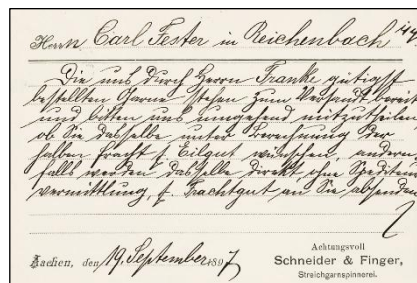 Herrn Carl Fester in Reichenbach i/V
Die uns durch Herrn Franke gütigst
bestellten Garne stehen zum Versandt bereit
und bitten uns umgehend mitzutheilen
ob Sie dasselbe unter Berechnung der
halben Fracht f. Eilgut wünschen, andern
falls werden dasselbe direkt ohne Spediteur
vermittlung, f. Frachtgut an Sie absenden
Aachen, den 19. September 1897
Achtungsvoll
Schneider & Finger,
Streichgarnspinnerei.